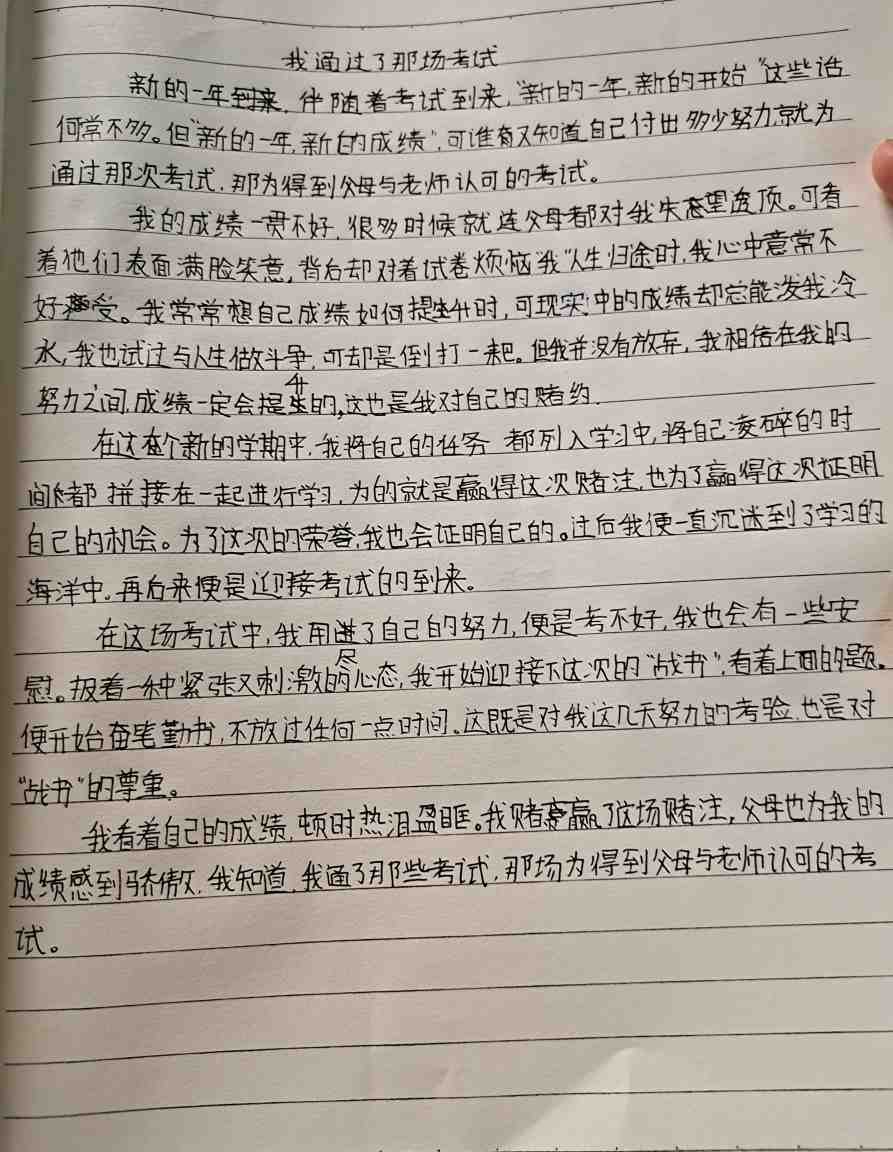 我通过了那场考试
新的一年到来,伴随着考试到来,“新的一年,新的开始”这些话
何常不多。但“新的一年,新的成绩”,可谁有又知道自己付出多少努力,就为
通过那次考试,那为得到父母与老师认可的考试。
我的成绩一贯不好,很多时候就连父母都对我失望透顶。可看
着他们表面满脸笑意,背后却对着试卷烦恼我“人生归途时,我心中意常不
好受。我常常想自己成绩如何提升时,可现实中的成绩却总能泼我冷
水,我也试过与人生做斗争,可却是倒打一耙。但我并没有放弃,我相信在我的
努力之间,成绩一定会提升的,这也是我对自己的赌约.
在这个新的学期中,我将自己的任务都列入学习中,将自己凌碎的时
间都拼接在一起进行学习,为的就是赢得这次赌注,也为了赢得这次证明
自己的机会。为了这次的荣誉,我也会证明自己的。过后我便一直沉迷到了学习的
海洋中,再后来便是迎接考试的到来。
在这场考试中,我用尽了自己的努力,便是考不好,我也会有一些安
慰。报着一种紧张又刺激的心态,我开始迎接下这次的“战书”,看着上面的题。
便开始奋笔勤书,不放过任何一点时间。这既是对我这几天努力的考验,也是对
“战书”的尊重。
我看着自己的成绩,顿时热泪盈眶。我赌赢了这场赌注,父母也为我的
成绩感到骄傲,我知道,我通了那些考试,那场为得到父母与老师认可的考
试。